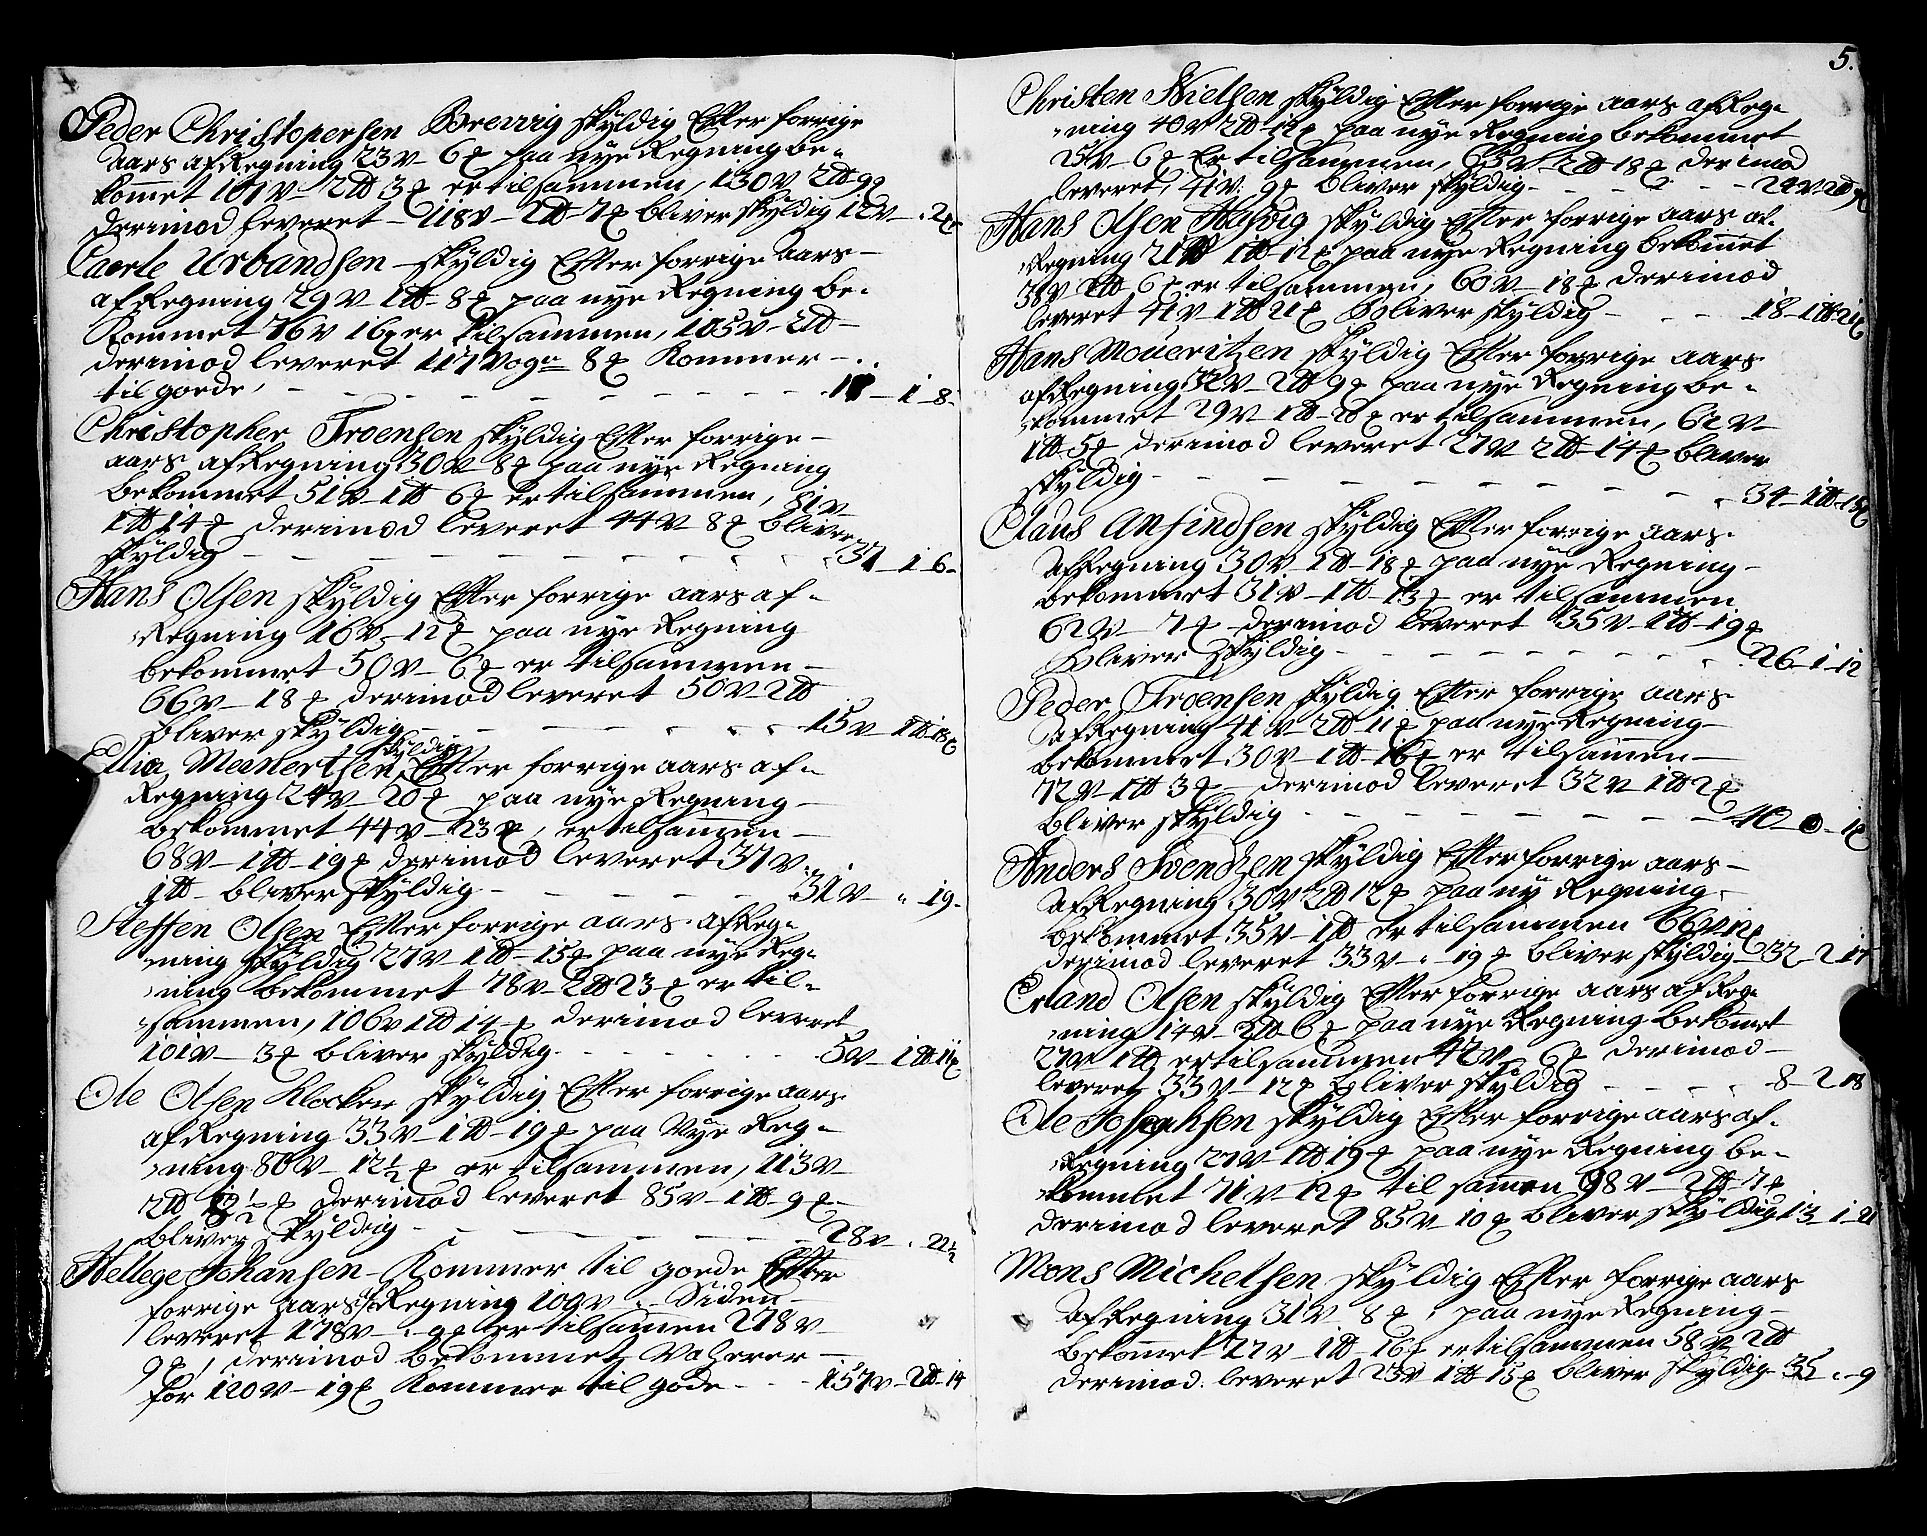 Peder Christopersen Brevig skyldig Effter forrige
aars afRegning 23 v - 6 ꝑ paa nye Regning be-
kommet 107 v - 2 ℔ 3 ꝑ er tilsammen, 130 v 2 ℔ 9 ꝑ
derimod leveret - 118 v - 2 ℔ - 7 ꝑ bliver skyldig 12 v - " 2 ꝑ
Caerle Urbandsen - skyldig Effter forrige Aars -
afRegning 29 v - 1 ℔ - 8 ꝑ paa nye Regning be-
Kommet 76 v 16 ꝑ er tilsammen, 105 v - 2 ℔ -
derimod leveret 117 Voger 8 ꝑ Kommer -
til goede, - - - - - 11 - 1 - 8 -
Christopher Troensen skyldig Effter forrige -
aars afRegning 30 v - 8 ꝑ paa nye Regning
bekommet 51 v - 1 ℔ 6 ꝑ er tilsammen, 81 v
1 ℔ 14 ꝑ derimod leveret 44 v 8 ꝑ bliver
skyldig - - - - - 37 - 1 - 6 -
Hans Olsen skyldig Effter forrige aars af-
Regning 16 v - 12 ꝑ paa nye Regning
bekommet 50 v - 6 ꝑ er tilsammen -
66 v - 18 ꝑ derimod leveret 50 v - 2 ℔
bliver skyldig - - - - - 15 v - 1 ℔ 18 ꝑ
skyldig
Ellia Meinertsen, Effter forrige aars af-
Regning 24 v - 20 ꝑ paa nye Regning -
bekommet 44 v - 23 ꝑ, er tilsammen -
68 v - 1 ℔ - 19 ꝑ derimod leveret 37 v
1 ℔ - bliver skyldig - - - - - 31 v - " - 19 -
Steffen Olsen Effter forrige aars afReg-
ning skyldig 27 v - 1 ℔ - 15 ꝑ paa nye Reg-
ning bekommet 78 v - 2 ℔ 23 ꝑ er til-
sammen, 106 v 1 ℔ 14 ꝑ derimod leveret
101 v - 3 ꝑ bliver skyldig - - - - - 5 v - 1 ℔ 11 ꝑ
Ole Olsen Klocker skyldig Effter forrige aars
afRegning 33 v - 1 ℔ - 19 ꝑ paa Nye Reg-
ning 80 v - 12 ½ ꝑ er tilsammen, 113 v
2 ℔ ½ ꝑ derimod leveret 85 v - 1 ℔ - 9 ꝑ -
bliver skyldig - - - - - 28 v - " 22 ½
Hellege Johansen - Kommer til goede Effter
forrige aars afRegning 100 v - Siden -
leveret 178 v - " 9 ꝑ er tilsamen 278 v -
9 ꝑ, derimod bekommet Vaherer -
for 120 v - 19 ꝑ Kommer til gode - - - 157 v - 2 ℔ - 14
5.
Christen Nielsen skyldig Effter forrige aars afReg-
ning 40 v 2 ℔ - 12 ꝑ paa nye Regning bekommet
25 v - 6 ꝑ Er tilsammen, 65 v - 2 ℔ 18 ꝑ derimod
leveret, 41 v. 9 ꝑ bliver skyldig - - - - - 24 v 2 ℔ 9 ꝑ
Hans Olsen skyldig Effter forrige aars af-
Regning 21 v 1 ℔ - 12 ꝑ paa nye Regning bekommet
38 v 1 ℔ 6 ꝑ er tilsammen, 60 v - 18 ꝑ derimod
leveret 41 v - 1 ℔ 21 ꝑ Bliver skyldig - - - 18 - 1 ℔ 21 ꝑ
Hans Moueritzen skyldig Effter forrige aars
afRegning 32 v - 2 ℔ 9 ꝑ paa nye Regning be-
kommet 29 v - 1 ℔ - 20 ꝑ er tilsammen, 62 v -
1 ℔ 5 ꝑ derimod leveret 27 v 2 ℔ - 14 ꝑ bliver
skyldig - - - - - 34 - 1 ℔ - 15 ꝑ
Claus Anfindsen skyldig Effter forrige aars -
AfRegning 30 v - 1 ℔ - 18 ꝑ paa nye Regning -
bekommet 31 v - 1 ℔ - 13 ꝑ er tilsammen
62 v - 7 ꝑ - derimod leveret 35 v - 1 ℔ - 19 ꝑ
Bliver skyldig - - - - - 26 - 1 - 12
Peder Troensen skyldig Effter forrige aars
AfRegning 41 v - 2 ℔ - 11 ꝑ paa nye Regning -
bekommet 30 v - 1 ℔ - 16 ꝑ er tilsammen -
72 v - 1 ℔ 3 ꝑ - derimod leveret 32 v - 1 ℔ 2 ꝑ
bliver skyldig - - - - - 40 - 0 - 1 ꝑ
Anders Svendsen skyldig Effter forrige aars -
AfRegning 30 v 2 ℔ 12 ꝑ paa ny Regning -
bekommet 35 v - 1 ℔ er tilsammen 66 v 12 ꝑ
derimod leveret 33 v - " - 19 ꝑ bliver skyldig - 32 - 2 - 17
Erland Olsen skyldig Effter forrige aars afReg-
ning 14 v - 2 ℔ 6 ꝑ paa nye Regning bekomet
27 v 1 ℔ er tilsammen 42 v - 6 ꝑ derimod -
leveret 33 v - 12 ꝑ bliver skyldig - - - - 8 - 2 18
Ole skyldig Effter forrige aars af-
Regning 27 v - 1 ℔ 19 ꝑ paa nye Regning be-
kommet 71 v - 12 ꝑ til samen 98 v - 2 ℔ - 7 ꝑ
derimod leveret 85 v - 10 ꝑ bliver skyldig 13 - 1 - 21
Mons Michelsen skyldig Effter forrige aars
AfRegning 31 v 8 ꝑ, paa nye Regning -
bekommet 27 v - 1 ℔ - 16 ꝑ er tilsammen 58 v 2 ℔
derimod. leveret 23 v - 1 ℔ 15 ꝑ bliver skyldig 35 " - 9